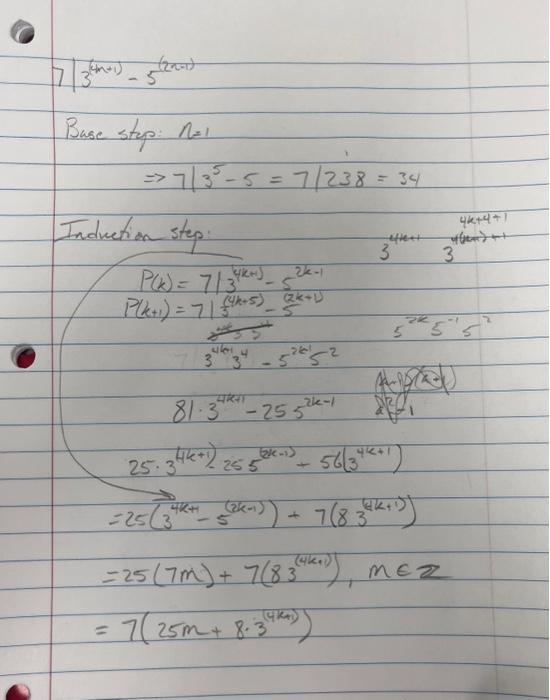 7 | 3^(4n+1) - 5^(2n-1)
Base step: n=1
=> 7 | 3^5 - 5 = 7 | 238 = 34
Induction step:
3^4k+1 3^4(k+1)+1 4k+4+1
P(k) = 7 | 3^(4k+1) - 5^2k-1
P(k+1) = 7 | 3^(4k+5) - 5^(2k+1)
5^2k 5^-1 5^2
3^4k+1 3^4 - 5^2k-1 5^2
81 · 3^4k+1 - 25 5^2k-1
25 · 3^(4k+1) - 25 5^(2k-1) + 56(3^4k+1)
= 25(3^4k+1 - 5^(2k-1)) + 7(8 3^(4k+1))
= 25(7m) + 7(8 3^(4k+1)), m ∈ Z
= 7(25m + 8 · 3^(4k+1))